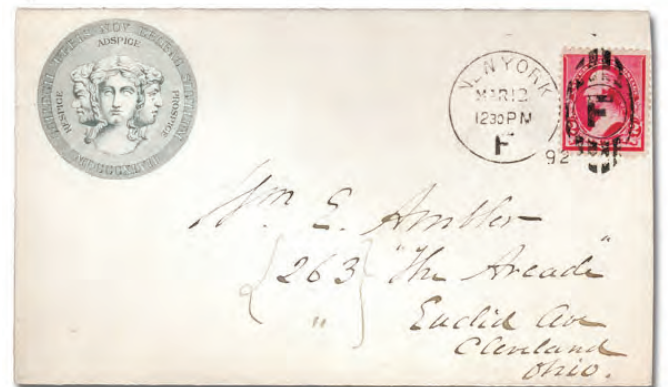 ADSPICE
RESPICE
PROSPICE
NEW YORK
MAR 12
1230 PM
F
92
F
2
2
Wm E. Ambler
263 "The Arcade"
"
Euclid Ave
Cleveland
Ohio.